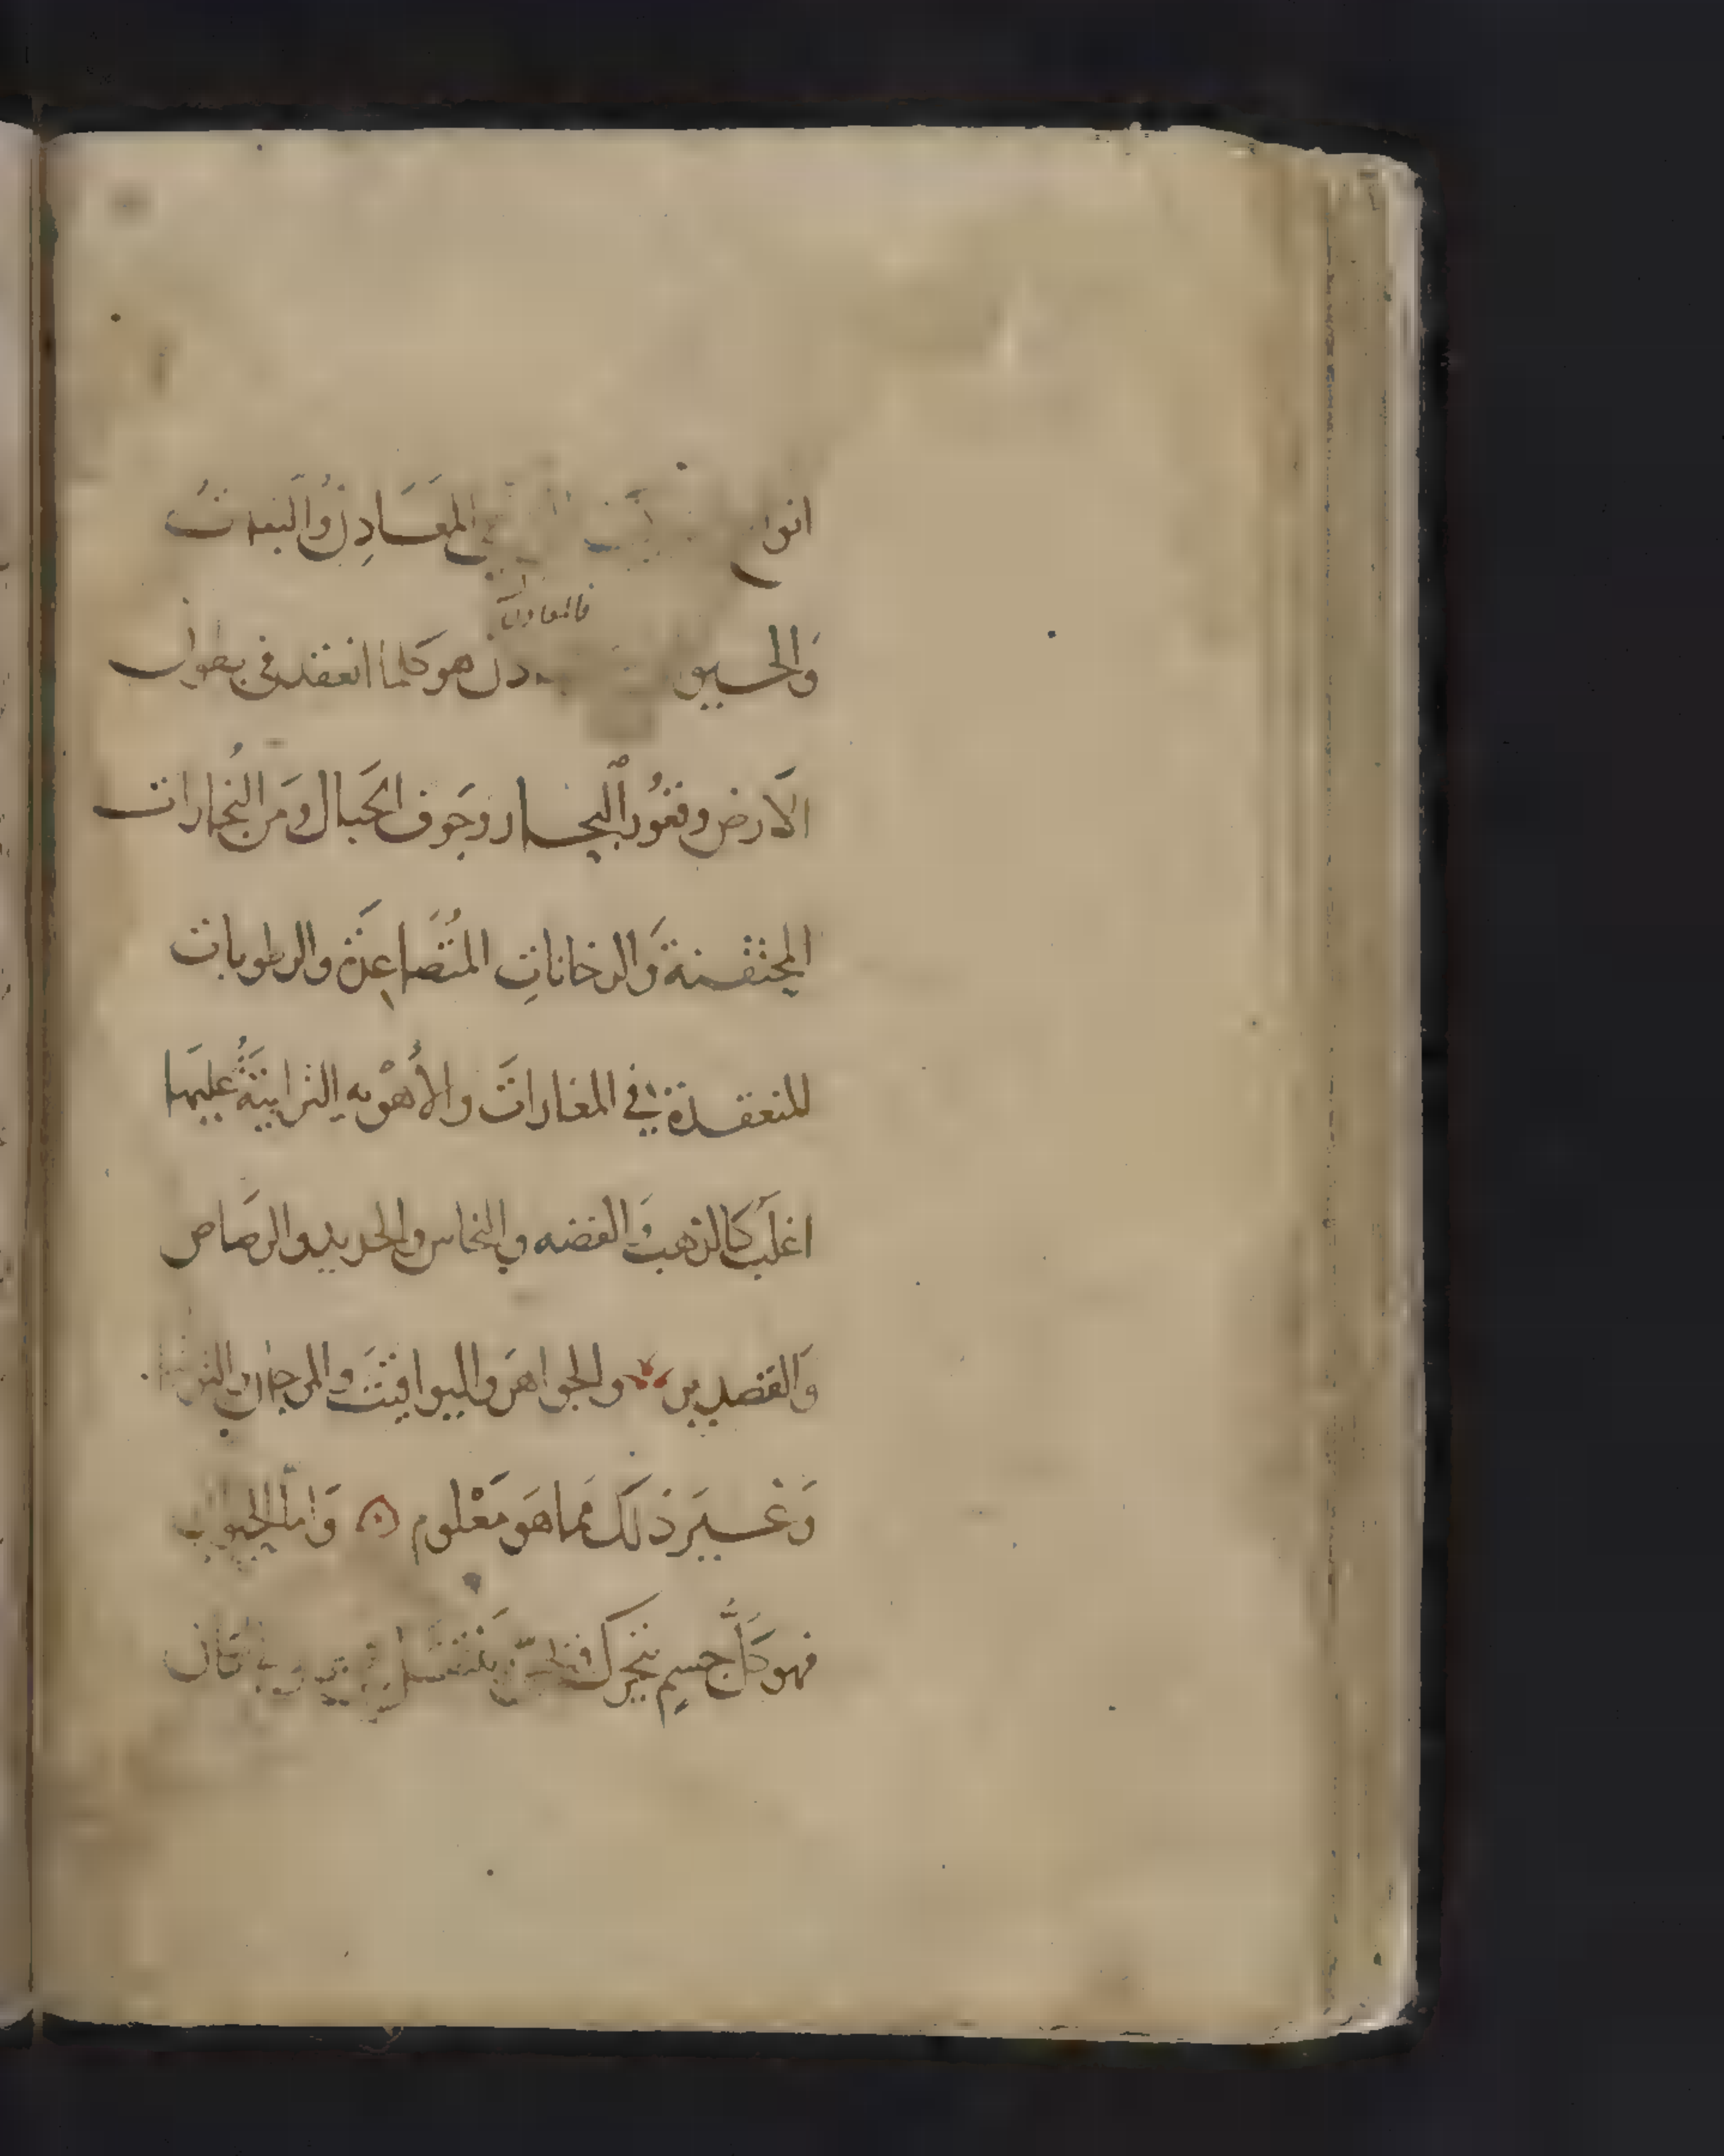 المعَادِن والنبات
فالمعادن
والحيو دن هو كلما انعقد في بطون
الارض وقعور البحار وجوف الجبال ومن البخارات
المحتقنة والدخانات المتصاعدة والرطوبات
المنعقدة في المغارات والأهويه الترابية عليها
اغلب كالذهب والفضه والنحاس والحديد والرصاص
والقصدير والجواهر واليواقيت والمرجان
وغير ذلك مما هو معلوم واما الحيوان
فهو كل جسم يتحرك